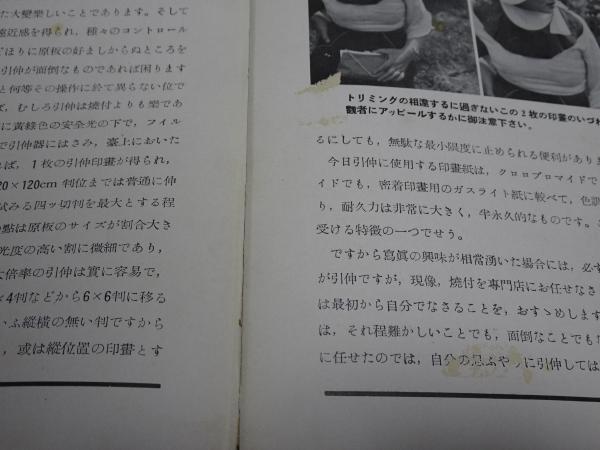 た大變樂しいことであります。そして
遠近感を得られ，種々のコントロール
どほりに原板の好ましからぬところを
引伸が面倒なものであれば困ります
と何等その操作に於て異らない位で
ば，むしろ引伸は燒付よりも樂であ
に黃綠色の安全光の下で，フイル
で引伸器にはさみ，臺上においた
れば，1枚の引伸印畫が得られ，
20×120cm 判位までは普通に伸
試みる四ッ切判を最大とする程
の點は原板のサイズが割合大き
光度の高い割に微細であり，
大倍率の引伸は實に容易で，
×4判などから6×6判に移る
いふ縱橫の無い判ですから
，或は縱位置の印畫とす
トリミングの相違するに過ぎないこの2枚の印畫のいづれ
觀者にアッピールするかに御注意下さい。
るにしても，無駄な最小限度に止められる便利があり
今日引伸に使用する印畫紙は，クロロブロマイドで
イドでも，密着印畫用のガスライト紙に較べて，色調
り，耐久力は非常に大きく，半永久的なものです。
受ける特徵の一つでせう。
ですから寫眞の興味が相當湧いた場合には，必ず
が引伸ですが，現像，燒付を專門店にお任せなさ
は最初から自分でなさることを，おすゝめします
は，それ程難かしいことでも，面倒なことでもな
に任せたのでは，自分の思ふやうに引伸しては